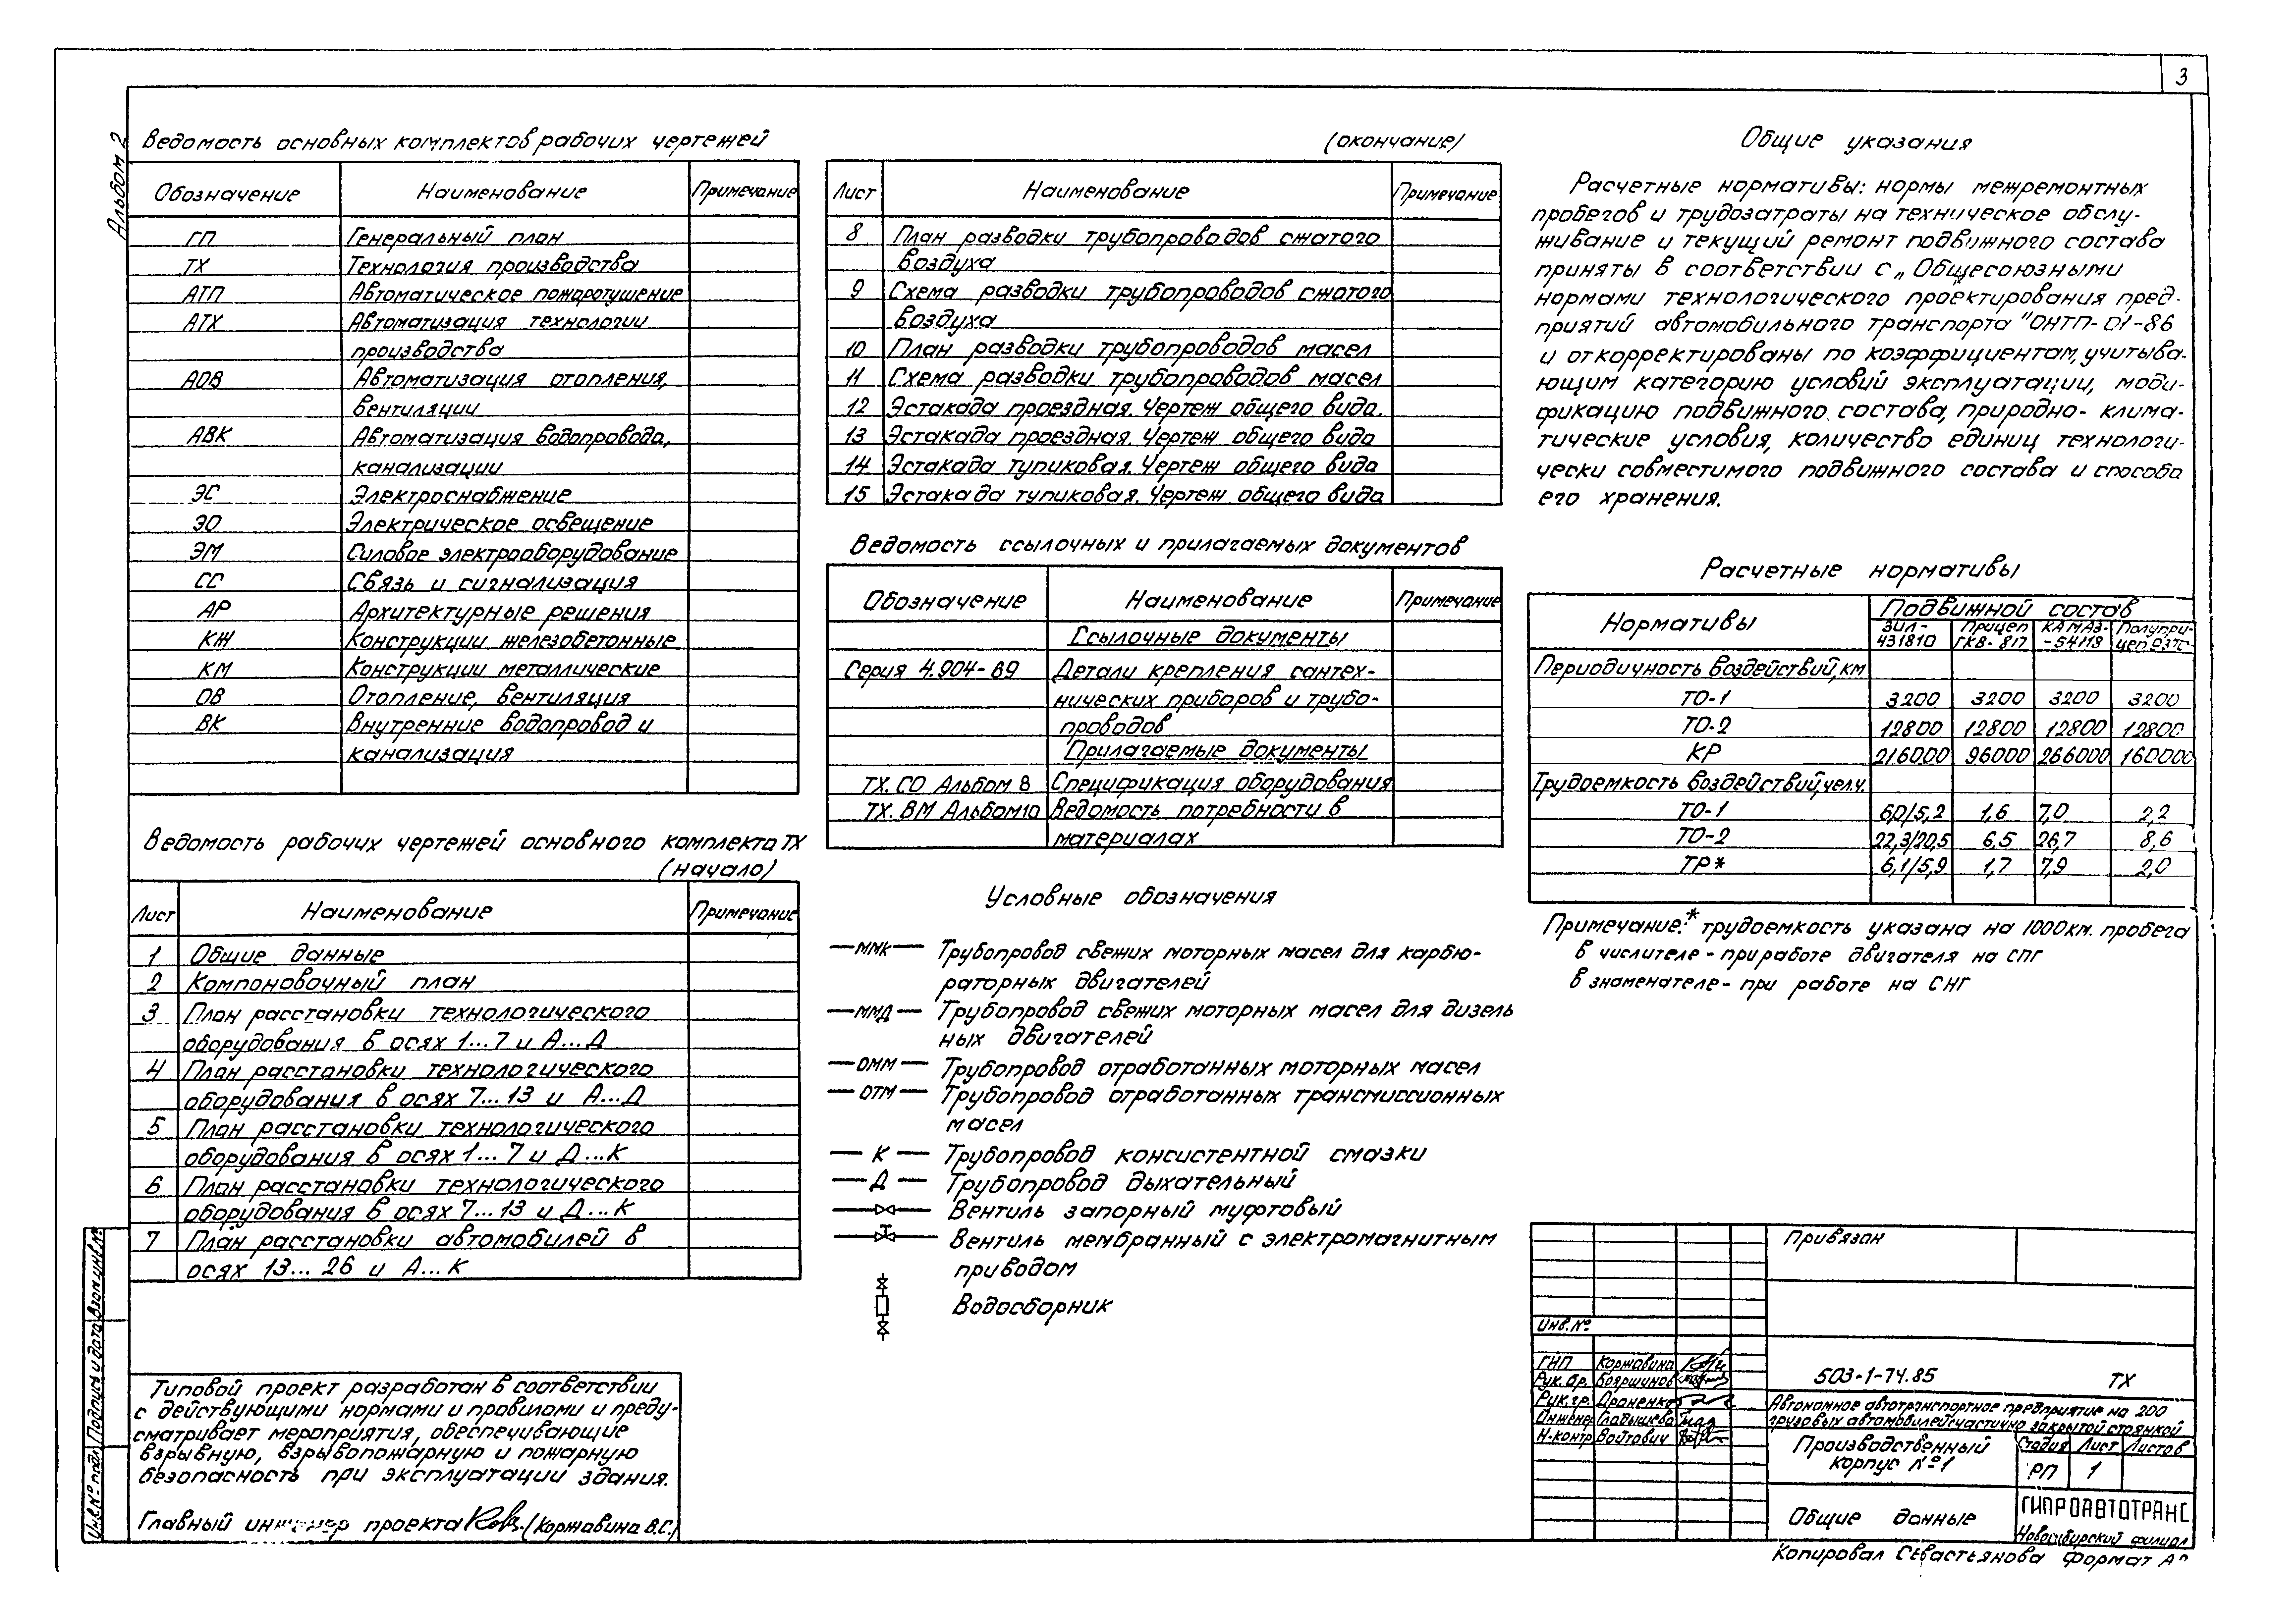 3
Альбом 2
Ведомость основных комплектов рабочих чертежей
Обозначение Наименование Примечание
ГП Генеральный план
ТХ Технология производства
АТП Автоматическое пожаротушение
АТХ Автоматизация технологии
производства
АОВ Автоматизация отопления,
вентиляции
АВК Автоматизация водопровода,
канализации
ЭС Электроснабжение
ЭО Электрическое освещение
ЭМ Силовое электрооборудование
СС Связь и сигнализация
АР Архитектурные решения
КЖ Конструкции железобетонные
КМ Конструкции металлические
ОВ Отопление, вентиляция
ВК Внутренние водопровод и
канализация
Ведомость рабочих чертежей основного комплекта ТХ
(начало)
Лист Наименование Примечание
1 Общие данные
2 Компоновочный план
3 План расстановки технологического
оборудования в осях 1...7 и А...Д
4 План расстановки технологического
оборудования в осях 7...13 и А...Д
5 План расстановки технологического
оборудования в осях 1...7 и Д...К
6 План расстановки технологического
оборудования в осях 7...13 и Д...К
7 План расстановки автомобилей в
осях 13...26 и А...К
Типовой проект разработан в соответствии
с действующими нормами и правилами и преду-
сматривает мероприятия, обеспечивающие
взрывную, взрывопожарную и пожарную
безопасность при эксплуатации здания.
Главный инженер проекта (Коржавина В.С.)
(окончание)
Лист Наименование Примечание
8 План разводки трубопроводов сжатого
воздуха
9 Схема разводки трубопроводов сжатого
воздуха
10 План разводки трубопроводов масел
11 Схема разводки трубопроводов масел
12 Эстакада проездная. Чертеж общего вида.
13 Эстакада проездная. Чертеж общего вида
14 Эстакада тупиковая. Чертеж общего вида
15 Эстакада тупиковая. Чертеж общего вида
Ведомость ссылочных и прилагаемых документов
Обозначение Наименование Примечание
Ссылочные документы
Серия 4.904-69 Детали крепления сантех-
нических приборов и трубо-
проводов
Прилагаемые документы
ТХ. СО Альбом 8 Спецификация оборудования
ТХ. ВМ Альбом 10 Ведомость потребности в
материалах
Условные обозначения
ММК Трубопровод свежих моторных масел для карбю-
раторных двигателей
ММД Трубопровод свежих моторных масел для дизель
ных двигателей
ОММ Трубопровод отработанных моторных масел
ОТМ Трубопровод отработанных трансмиссионных
масел
К Трубопровод консистентной смазки
Д Трубопровод дыхательный
Вентиль запорный муфтовый
Вентиль мембранный с электромагнитным
приводом
Водосборник
Общие указания
Расчетные нормативы: нормы межремонтных
пробегов и трудозатраты на техническое обслу-
живание и текущий ремонт подвижного состава
приняты в соответствии с „Общесоюзными
нормами технологического проектирования пред-
приятий автомобильного транспорта" ОНТП-01-86
и откорректированы по коэффициентам, учитыва-
ющим категорию условий эксплуатации, моди-
фикацию подвижного состава, природно-клима-
тические условия, количество единиц технологи-
чески совместимого подвижного состава и способа
его хранения.
Расчетные нормативы
Нормативы Подвижной состав
ЗИЛ- Прицеп КАМАЗ- Полупри-
431810 ГКБ-817 -54118 цеп ОЗТП-
Периодичность воздействий, км
ТО-1 3200 3200 3200 3200
ТО-2 12800 12800 12800 12800
КР 216000 96000 266000 160000
Трудоемкость воздействий, чел.ч.
ТО-1 6,0/5,2 1,6 7,0 2,2
ТО-2 22,3/20,5 6,5 26,7 8,6
ТР* 6,1/5,9 1,7 7,9 2,0
Примечание:* трудоемкость указана на 1000км. пробега
в числителе - при работе двигателя на СПГ
в знаменателе - при работе на СНГ
Привязан
Инв.№
ГИП Коржавина
Рук.бр. Бояршинов
Рук.гр. Драненко
Инженер Гладышева
Н-контр Войтович
503-1-74.85 ТХ
Автономное автотранспортное предприятие на 200
грузовых автомобилей с частично закрытой стоянкой
Производственный
корпус №1
Стадия Лист Листов
РП 1
Общие данные
ГИПРОАВТОТРАНС
Новосибирский филиал
Копировал Севастьянова Формат А
Инв.№ подл. Подпись и дата Взам.инв.№